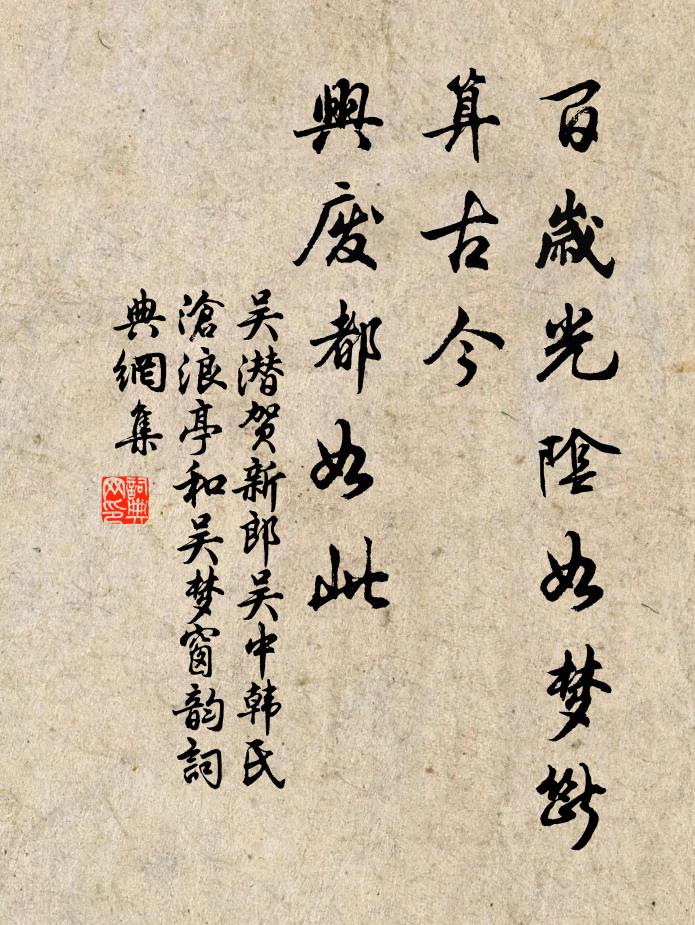 百歲光陰如梦斷
算古今
興廢都如此
吴潜贺新郎吴中韩氏
滄浪亭和吴梦窗韵詞
典網集
詞典
网印